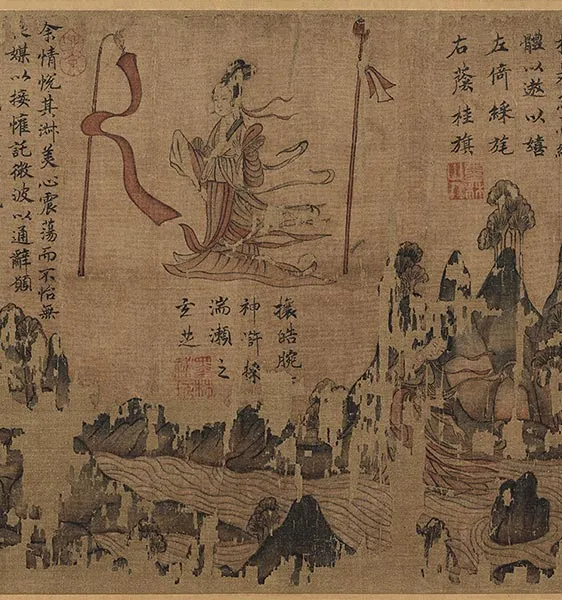 體以遨以嬉
左倚綵旄
右蔭桂旗
攘皓腕
神滸採
湍瀨之
玄芝
余情悅其淑美心震蕩而不怡無
媒以接懽託微波以通辭願